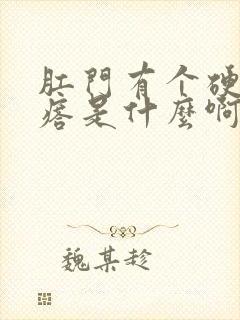 肛門有个硬
痞是什麼啊
魏某趁